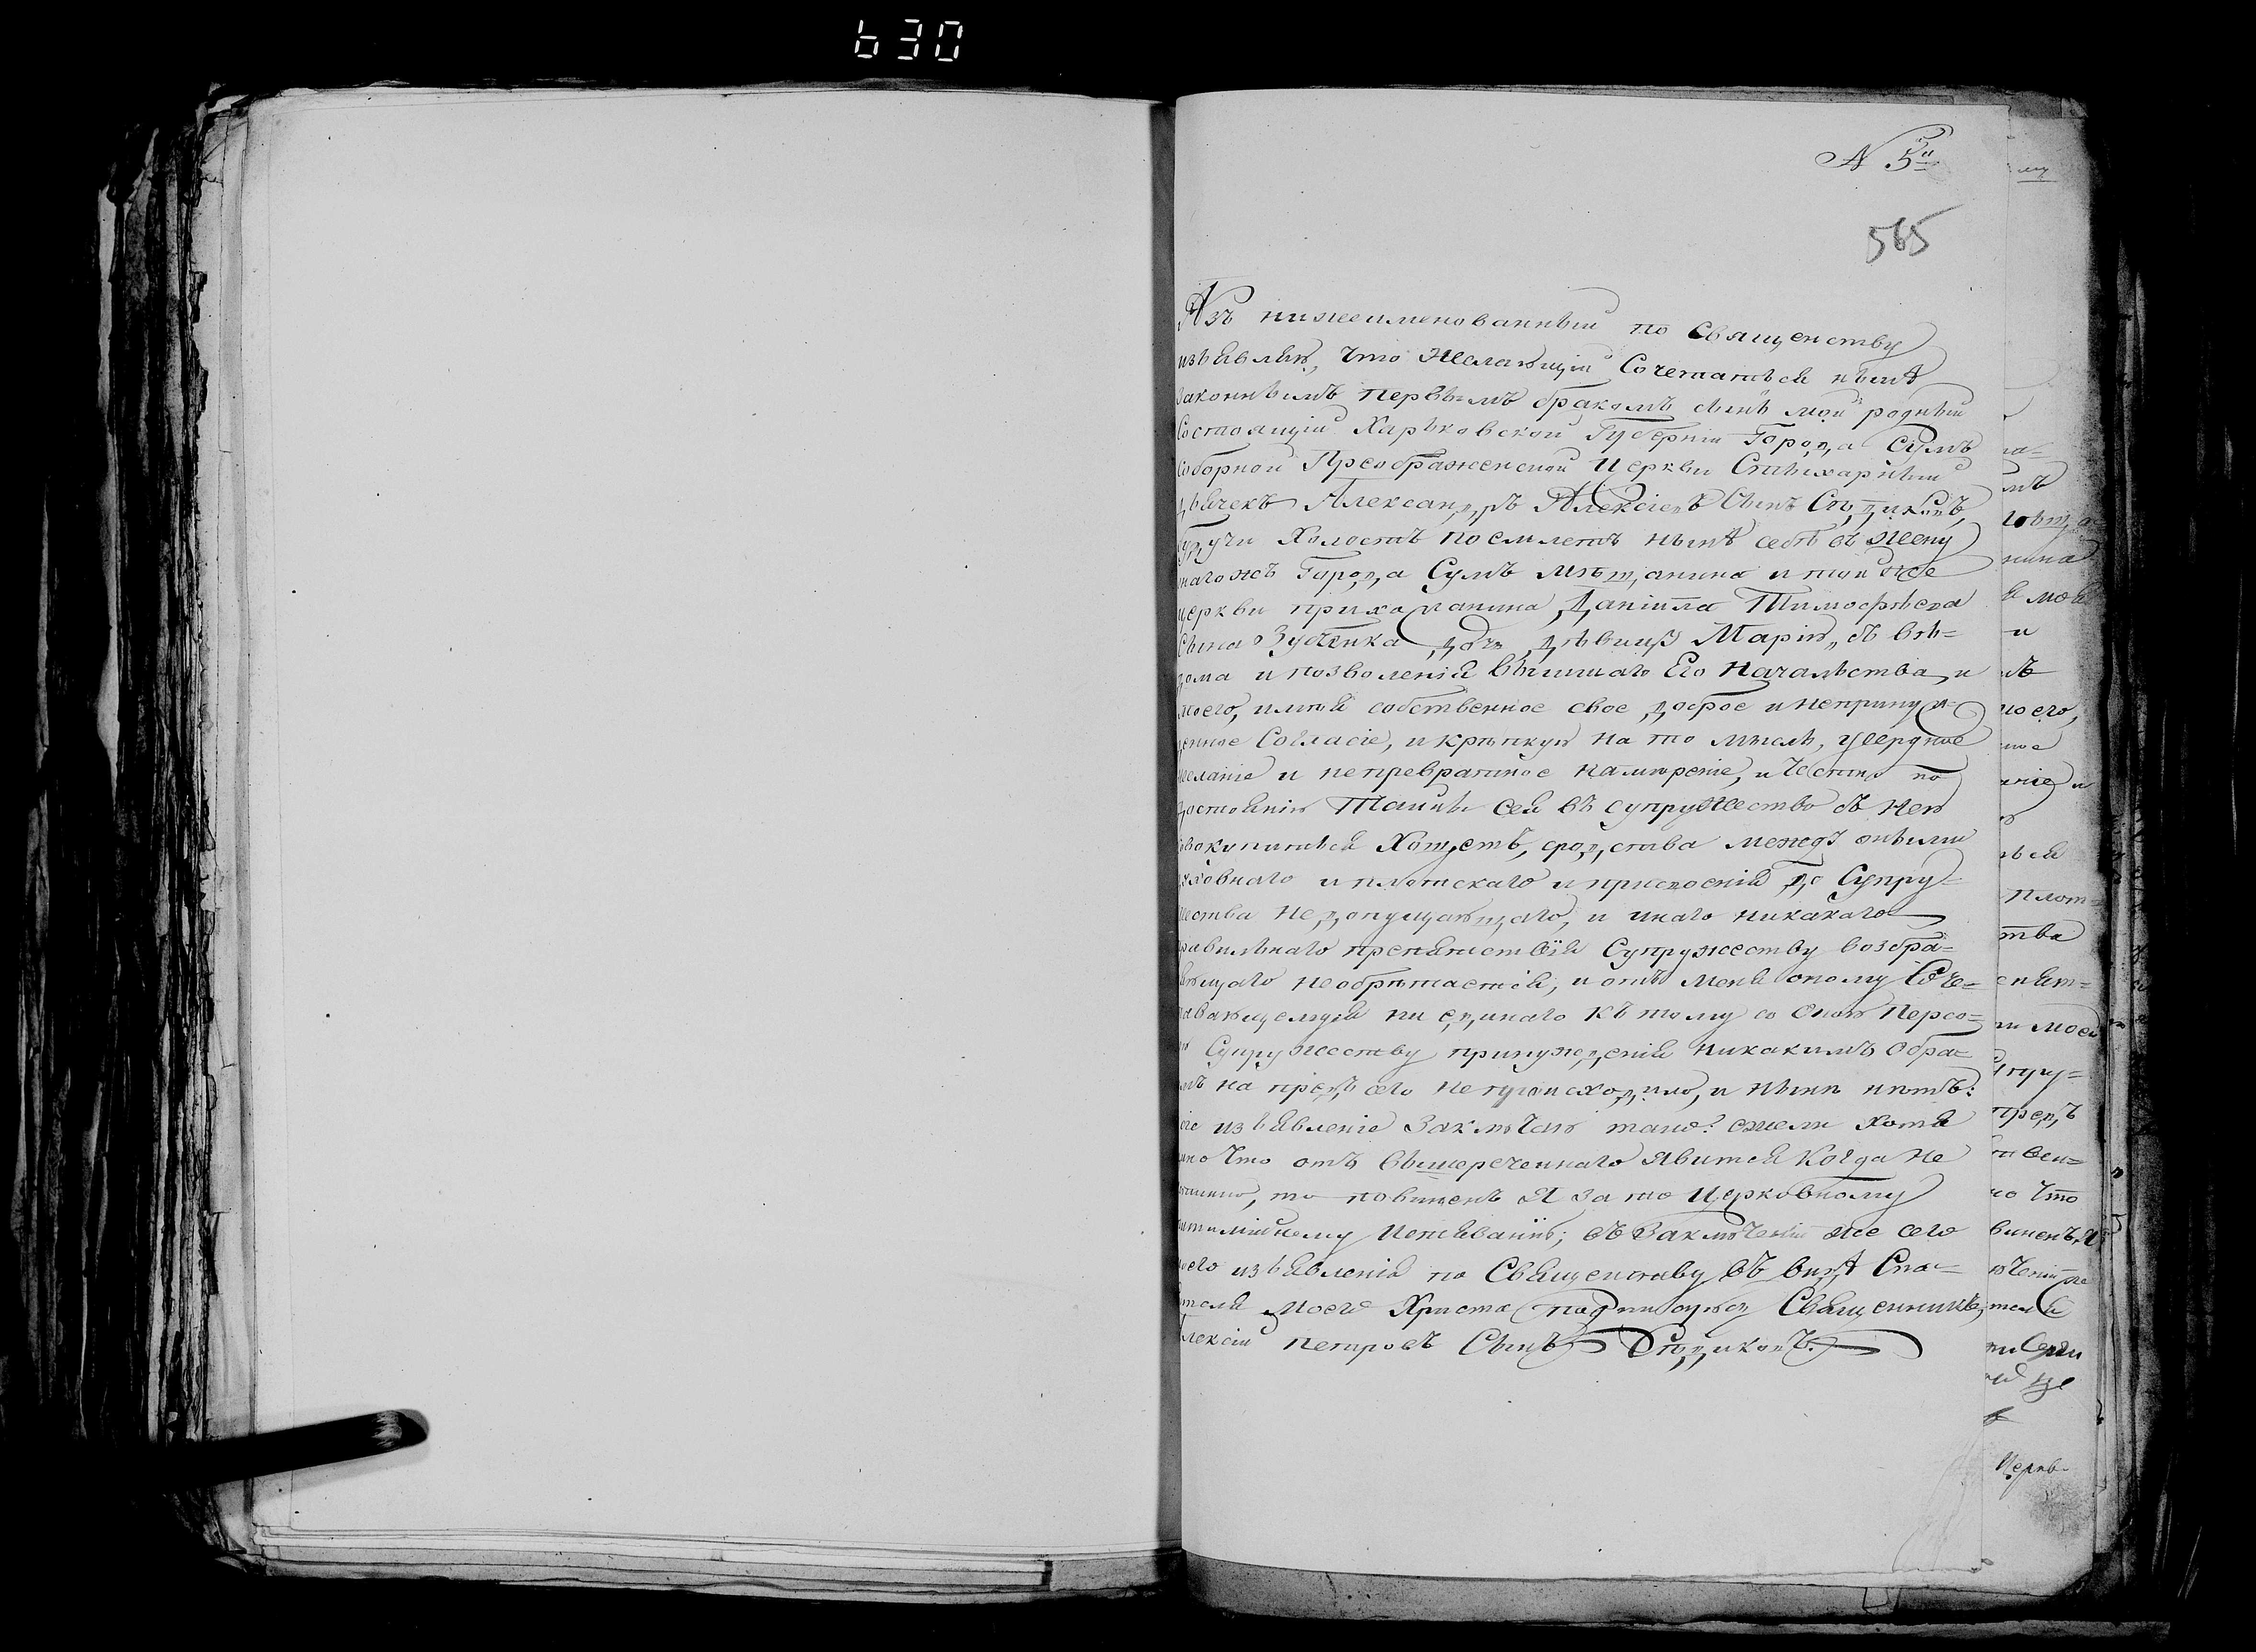 630
N 5й
565
Азъ нижеименованный по Священству
изъявляю, что желающій Сочетаться нынѣ
законнымъ первымъ бракомъ сынъ мой родный
Состоящій Харьковской Губерніи Города Сумъ
Соборной Преображенской Церкви Стихарный
Дьячекъ Александръ Алексіевъ Сынъ
будучи Холостъ поемлетъ нынѣ себѣ въ жену
тагожъ Города Сумъ мѣщанина и той же
церкви прихожанина Даніила Тимофѣева
Сына Зубченка дочь дѣвицу Марію, съ вѣ=
дома и позволенія вышшаго Его Начальства, и
моего, имѣя собственное свое доброе и непринуж=
денное Согласіе, и крѣпкую на то мысль, усердное
желаніе и непревратное намѣреніе, и честно по
достоянію Тайны Сея въ супружество съ нею
совокупиться Хощетъ, сродства между оными
духовнаго и плотскаго и присвоенія до Супру=
жества недопущающаго, и инаго никакаго
правильнаго препятствія Супружеству возбра=
няющаго необрѣтается, и отъ меня оному Соче=
тавающемуся ни единаго къ тому со оною Персо=
ною Супружеству принужденія никакимъ обра=
зомъ на предъ сего непроисходило, и нынѣ нѣтъ:
сіе изъявленіе заключаю тако: ежели хотя
мало что отъ вышереченнаго явится когда не
истинно, то повиненъ Я за то Церковному
Епитимійному Истязанію; въ Заключеніи же сего
моего изъявленія по Священству въ видѣ Спа=
сителя моего Христа подписуюсь Священникъ
Алексій Петровъ Сынъ